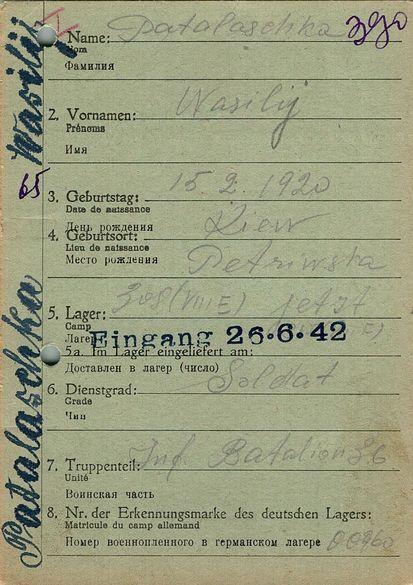 Patalaschka Wasilij
65
Name: Patalaschka
Nom
Фамилия
2. Vornamen: Wasilij
Prénoms
Имя
3. Geburtstag: 15.2.1920
Date de naissance
День рождения
4. Geburtsort: Kiew
Lieu de naissance
Место рождения Petriwska
5. Lager: 308 (VIII E) jetzt
Camp
Лагерь
Eingang 26.6.42
5a. Im Lager eingeliefert am:
Доставлен в лагер (число)
6. Dienstgrad: Soldat
Grade
Чин
7. Truppenteil: Inf. Batalion 36
Unité
Воинская часть
8. Nr. der Erkennungsmarke des deutschen Lagers:
Matricule du camp allemand
Номер военнопленного в германском лагере